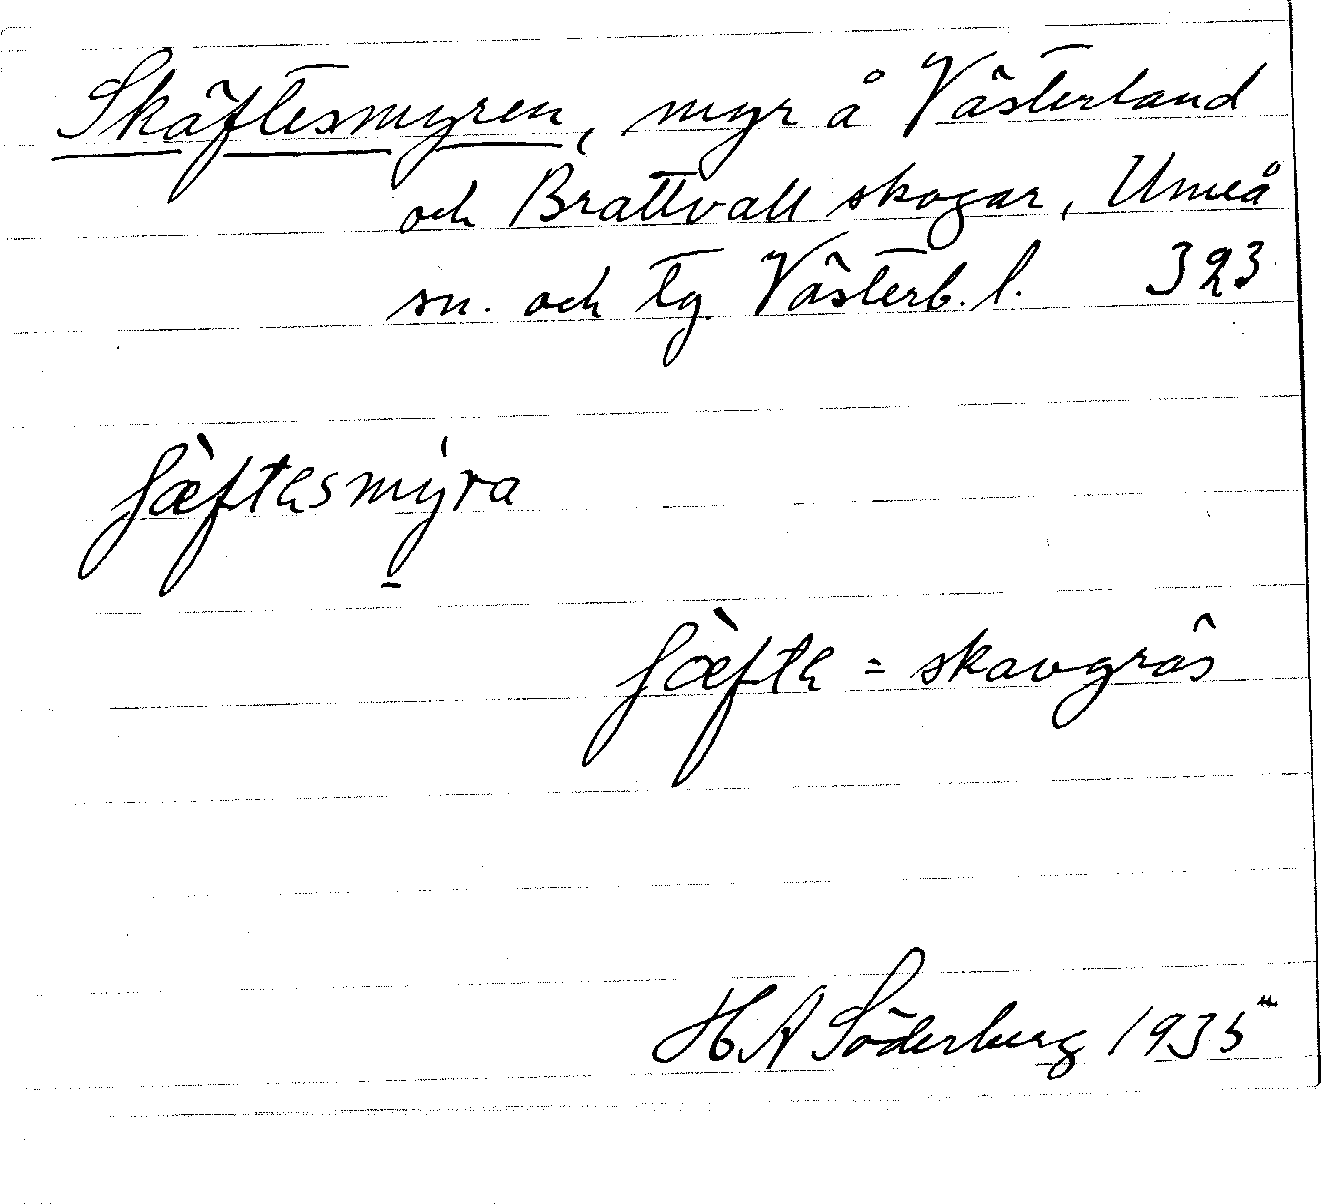 Skäftesmyren, myr å Västerland
och Brattvall skogar, Umeå
sn. och tg. Västerb. l. 323
= skavgräs
H A Söderberg 1935